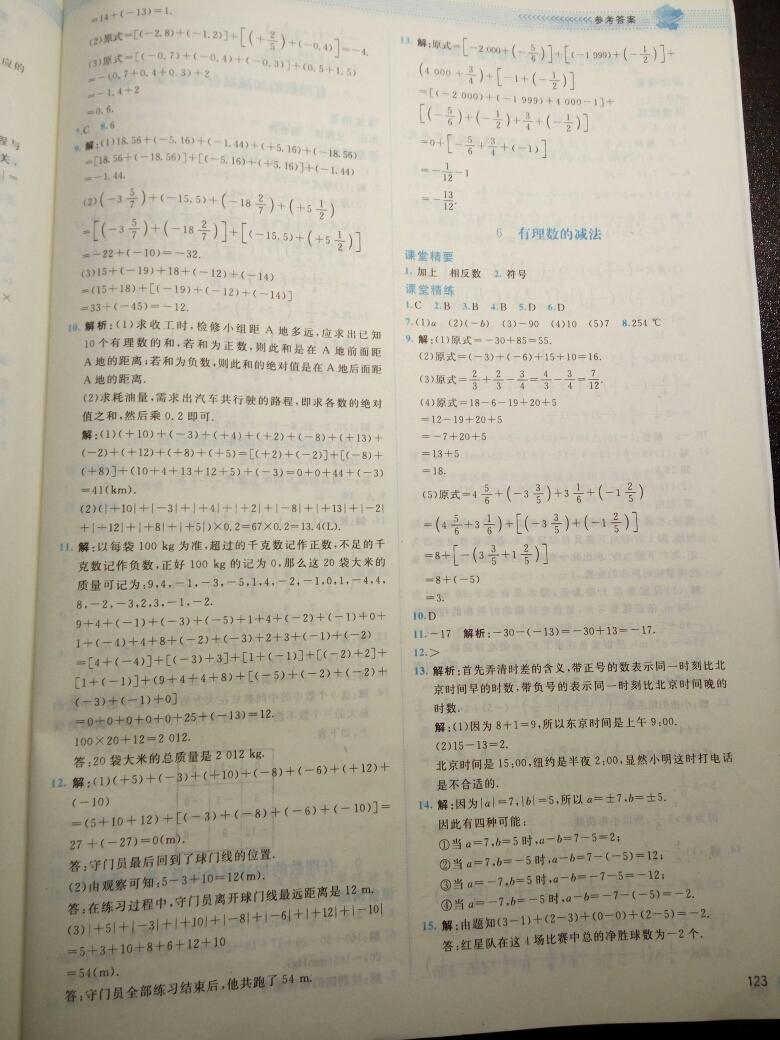 参考答案
应的
程与
关。
=14+(-13)=1.
(2)原式=[(-2.8)+(-1.2)]+[(+2/5)+(-0.4)]=-4.
(3)原式=[(-0.7)+(-0.4)+(-0.3)]+(0.5+1.5)
=-(0.7+0.4+0.3)+2
=-1.4+2
=0.6.
7.C 8.6
9.解:(1)18.56+(-5.16)+(-1.44)+(+5.16)+(-18.56)
=[18.56+(-18.56)]+[(-5.16)+(+5.16)]+(-1.44)
=-1.44.
(2)(-3 5/7)+(-15.5)+(-18 2/7)+(+5 1/2)
=[(-3 5/7)+(-18 2/7)]+[(-15.5)+(+5 1/2)]
=-22+(-10)=-32.
(3)15+(-19)+18+(-12)+(-14)
=(15+18)+[(-19)+(-12)+(-14)]
=33+(-45)=-12.
10.解析:(1)求收工时,检修小组距 A 地多远,应求出已知
10个有理数的和,若和为正数,则此和是在 A 地前面距
A地的距离;若和为负数,则此和的绝对值是在A地后面距
A地的距离.
(2)求耗油量,需求出汽车共行驶的路程,即求各数的绝对
值之和,然后乘0.2即可.
解:(1)(+10)+(-3)+(+4)+(+2)+(-8)+(+13)+
(-2)+(+12)+(+8)+(+5)=[(+2)+(-2)]+[(-8)+
(+8)]+(10+4+13+12+5)+(-3)=0+0+44+(-3)
=41(km).
(2)(|+10|+|-3|+|+4|+|+2|+|-8|+|+13|+|-2|
+|+12|+|+8|+|+5|)×0.2=67×0.2=13.4(L).
11.解:以每袋 100 kg 为准,超过的千克数记作正数,不足的千
克数记作负数,正好 100 kg 的记为 0,那么这 20 袋大米的
质量可记为:9,4,-1,-3,-5,1,4,-2,-1,0,1,-4,4,
8,-2,-3,2,3,-1,-2.
9+4+(-1)+(-3)+(-5)+1+4+(-2)+(-1)+0+
1+(-4)+4+8+(-2)+(-3)+2+3+(-1)+(-2)
=[4+(-4)]+[(-3)+3]+[1+(-1)]+[(-2)+2]+
[1+(-1)]+(9+4+4+8)+[(-5)+(-2)+(-2)+
(-3)+(-1)+0]
=0+0+0+0+0+25+(-13)=12.
100×20+12=2 012.
答:20 袋大米的总质量是 2 012 kg.
12.解:(1)(+5)+(-3)+(+10)+(-8)+(-6)+(+12)+
(-10)
=(5+10+12)+[(-3)+(-8)+(-6)+(-10)]=
27+(-27)=0(m).
答:守门员最后回到了球门线的位置.
(2)由观察可知:5-3+10=12(m).
答:在练习过程中,守门员离开球门线最远距离是 12 m.
(3)|+5|+|-3|+|+10|+|-8|+|-6|+|+12|+|-10|
=5+3+10+8+6+12+10
=54(m).
答:守门员全部练习结束后,他共跑了 54 m.
13.解:原式=[-2 000+(-5/6)]+[(-1 999)+(-1/2)]+
(4 000+3/4)+[-1+(-1/2)]
=[(-2 000)+(-1 999)+4 000-1]+
[(-5/6)+(-1/2)+3/4+(-1/2)]
=0+[-5/6+3/4+(-1)]
=-1/12-1
=-13/12.
6 有理数的减法
课堂精要
1.加上 相反数 2.符号
课堂精练
1.C 2.B 3.B 4.B 5.D 6.D
7.(1)a (2)(-b) (3)-90 (4)10 (5)7 8.254 ℃
9.解:(1)原式=-30+85=55.
(2)原式=(-3)+(-6)+15+10=16.
(3)原式=2/3+2/3-3/4=4/3-3/4=7/12.
(4)原式=18-6-19+20+5
=12-19+20+5
=-7+20+5
=13+5
=18.
(5)原式=4 5/6+(-3 3/5)+3 1/6+(-1 2/5)
=(4 5/6+3 1/6)+[(-3 3/5)+(-1 2/5)]
=8+[-(3 3/5+1 2/5)]
=8+(-5)
=3.
10.D
11.-17 解析:-30-(-13)=-30+13=-17.
12.>
13.解析:首先弄清时差的含义,带正号的数表示同一时刻比北
京时间早的时数,带负号的表示同一时刻比北京时间晚的
时数.
解:(1)因为 8+1=9,所以东京时间是上午 9:00.
(2)15-13=2.
北京时间是 15:00,纽约是半夜 2:00,显然小明这时打电话
是不合适的.
14.解:因为|a|=7,|b|=5,所以 a=±7,b=±5.
因此有四种可能:
①当 a=7,b=5 时,a-b=7-5=2;
②当 a=7,b=-5 时,a-b=7-(-5)=12;
③当 a=-7,b=5 时,a-b=-7-5=-12;
④当 a=-7,b=-5 时,a-b=-7-(-5)=-2.
15.解:由题知(3-1)+(2-3)+(0-0)+(2-5)=-2.
答:红星队在这 4 场比赛中总的净胜球数为-2 个.
123